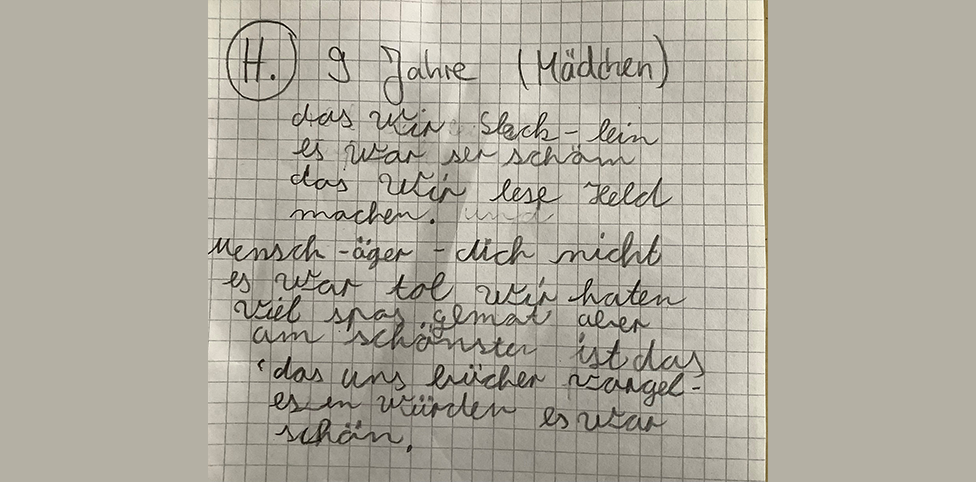 H. 9 Jahre (Mädchen)
das wir Sleck-lein
es war ser schäm
das wir lese Held
machen. und
Mensch-äger-dich nicht
es war tol wir haten
viel spas gemat aber
am schönster ist das
das uns bücher vorgel-
esen würden es war
schön.